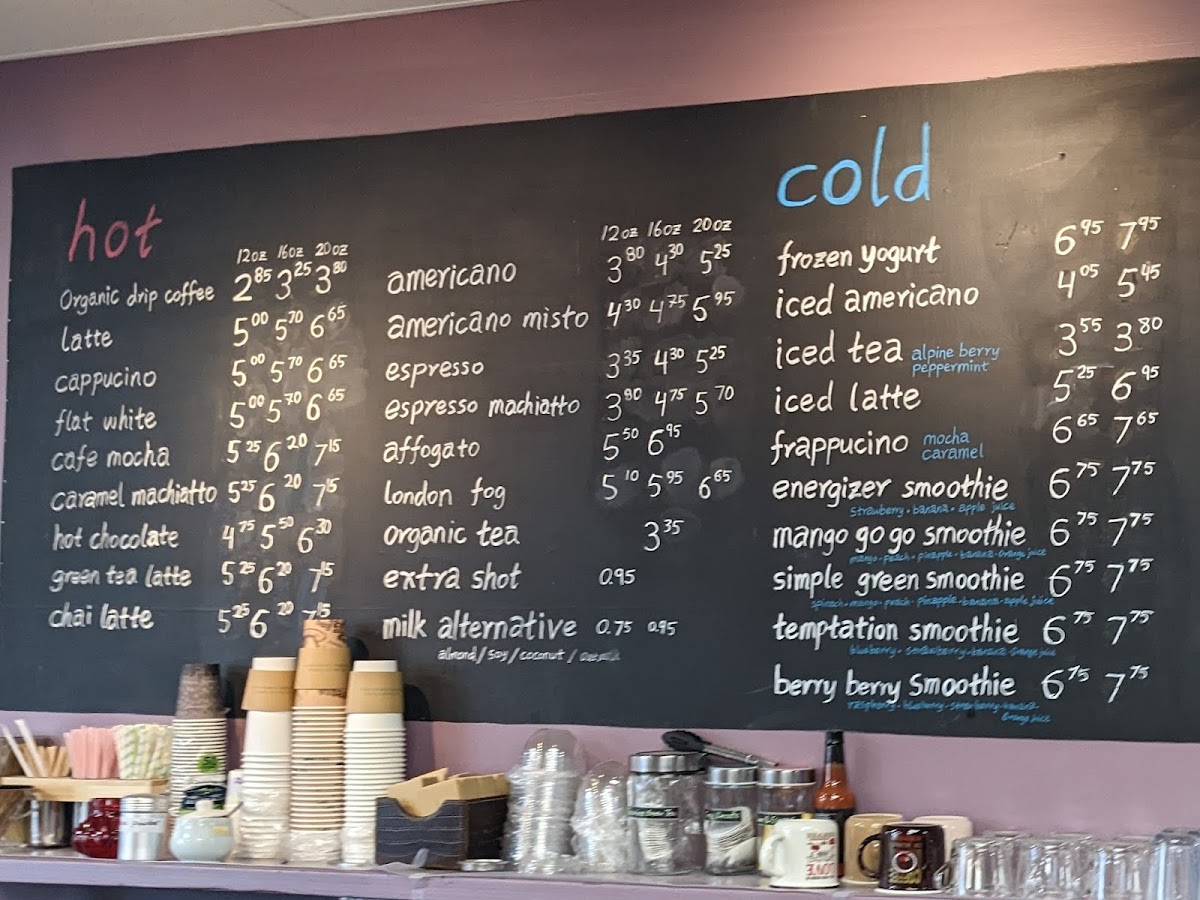 hot
12oz 16oz 20oz
Organic drip coffee 2.85 3.25 3.80
latte 5.00 5.70 6.65
cappucino 5.00 5.70 6.65
flat white 5.00 5.70 6.65
cafe mocha 5.25 6.20 7.15
caramel machiatto 5.25 6.20 7.15
hot chocolate 4.75 5.50 6.30
green tea latte 5.25 6.20 7.15
chai latte 5.25 6.20 7.15
12oz 16oz 20oz
americano 3.80 4.30 5.25
americano misto 4.30 4.75 5.95
espresso 3.35 4.30 5.25
espresso machiatto 3.80 4.75 5.70
affogato 5.50 6.95
london fog 5.10 5.95 6.65
organic tea 3.35
extra shot 0.95
milk alternative 0.75 0.95
almond/soy/coconut/
cold
frozen yogurt 6.95 7.95
iced americano 4.05 5.45
iced tea alpine berry 3.55 3.80
peppermint
iced latte 5.25 6.95
frappucino mocha 6.65 7.65
caramel
energizer smoothie 6.75 7.75
strawberry · banana · apple juice
mango go go smoothie 6.75 7.75
mango · peach · pineapple · banana · orange juice
simple green smoothie 6.75 7.75
spinach · mango · peach · pineapple · banana · apple juice
temptation smoothie 6.75 7.75
blueberry · strawberry · banana · orange juice
berry berry smoothie 6.75 7.75
raspberry · blueberry · strawberry · banana
orange juice
LOVE